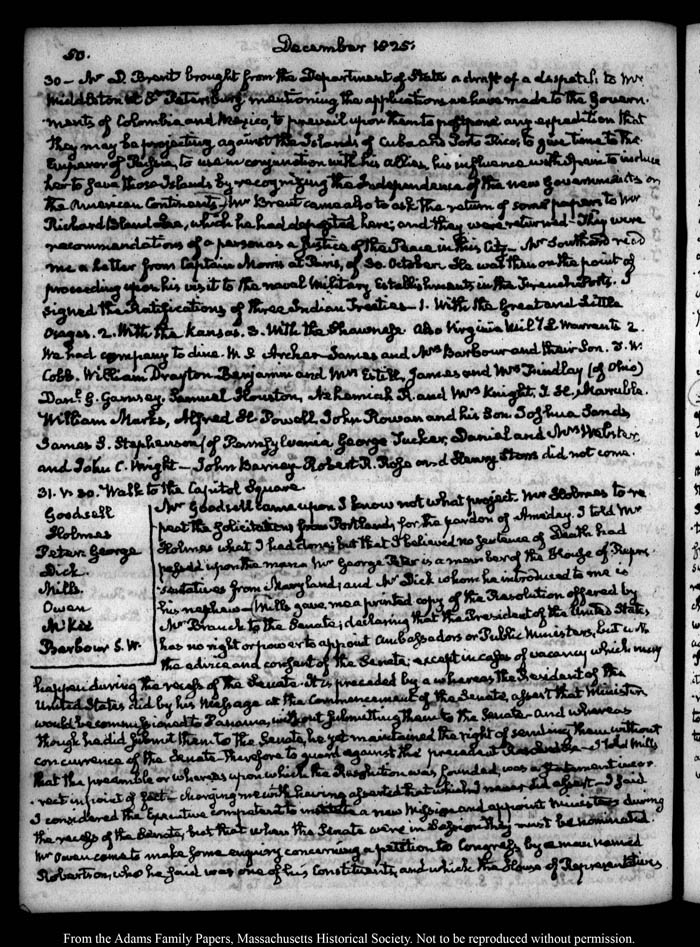 50.
December 1825.
30 – Mr D. Brent brought from the Department of State a draft of a despatch to Mr
Middleton at St Petersburg mentioning the applications we have made to the Govern-
ments of Colombia and Mexico, to prevail upon them to postpone any expedition that
they may be projecting against the Islands of Cuba and Porto Rico, to give time to the
Emperor of Russia, to use in conjunction with his allies, his influence with Spain to induce
her to save those Islands by recognizing the Independence of the new Governments on
the American Continents. Mr Brent came also to ask the return of some papers to Mr
Richard Bland Lee, which he had deposited here; and they were returned – They were
recommendations of a person as a Justice of the Peace in this City – Mr Southard recd
me a letter from Captain Morris at Paris, of 30. October. He was then on the point of
proceeding upon his visit to the naval Military Establishments in the French Ports. I
signed the Ratifications of three Indian Treaties – 1. With the Great and Little
Osages. 2. With the Kansas. 3. With the Shawnese. Also Virginia Mil. Warrants 2.
We had company to dine. M. S. Archer James and Mrs Barbour and their Son. T. W.
Cobb. William Drayton Benjamin and Mrs Estill, James and Mrs Findlay (of Ohio)
Danl. G. Garnsey, Samuel Houston, Nehemiah R. and Mrs Knight,
William Marks, Alfred H. Powell, John Rowan and his Son. Joshua Sands
James S. Stephenson (of Pennsylvania George Tucker, Daniel and Mrs Webster,
and John C. Wright – John Barney Robert R. Rose and Henry Storrs did not come.
31. V. 30. Walk to the Capitol Square.
Goodsell
Holmes
Peter. George
Dick.
Mills.
Owen
McKee
Barbour S. W.
Mr Goodsell came upon I know not what project. Mr Holmes to re
peat the solicitations from Portland, for the pardon of Ameday. I told Mr
Holmes what I had done; but that I believed no sentence of Death had
passed upon the man. Mr George Peter is a member of the House of Repre-
sentatives from Maryland; and Mr Dick whom he introduced to me is
his nephew – Mills gave me a printed copy of the Resolution offered by
Mr Branch to the Senate; declaring that the President of the United States
has no right or power to appoint Ambassadors or Public Ministers, but with
the advice and consent of the Senate; except in cases of vacancy which may
happen during the recess of the Senate. It is preceded by a whereas the President of the
United States did by his Message at the Commencement of the Senate, assert that Ministers
would be commissioned to Panama, without submitting them to the Senate – And whereas
though he did submit them to the Senate, he yet maintained the right of sending them without
concurrence of the Senate – therefore to guard against the precedent Resolved – I told Mills
that the preamble or whereas upon which the Resolution was founded, was a statement incor-
rect in point of fact – charging me with having asserted that which I never did assert – I said
I considered the Executive competent to institute a new Mission and appoint Ministers during
the recess of the Senate, but that when the Senate were in Session they must be nominated.
Mr Owen came to make some enquiry concerning a petition to Congress by a man named
Robertson, who he said was one of his Constituents, and which the House of Representatives
From the Adams Family Papers, Massachusetts Historical Society. Not to be reproduced without permission.